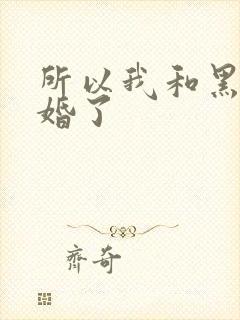 所以我和黑
婚了
齐奇